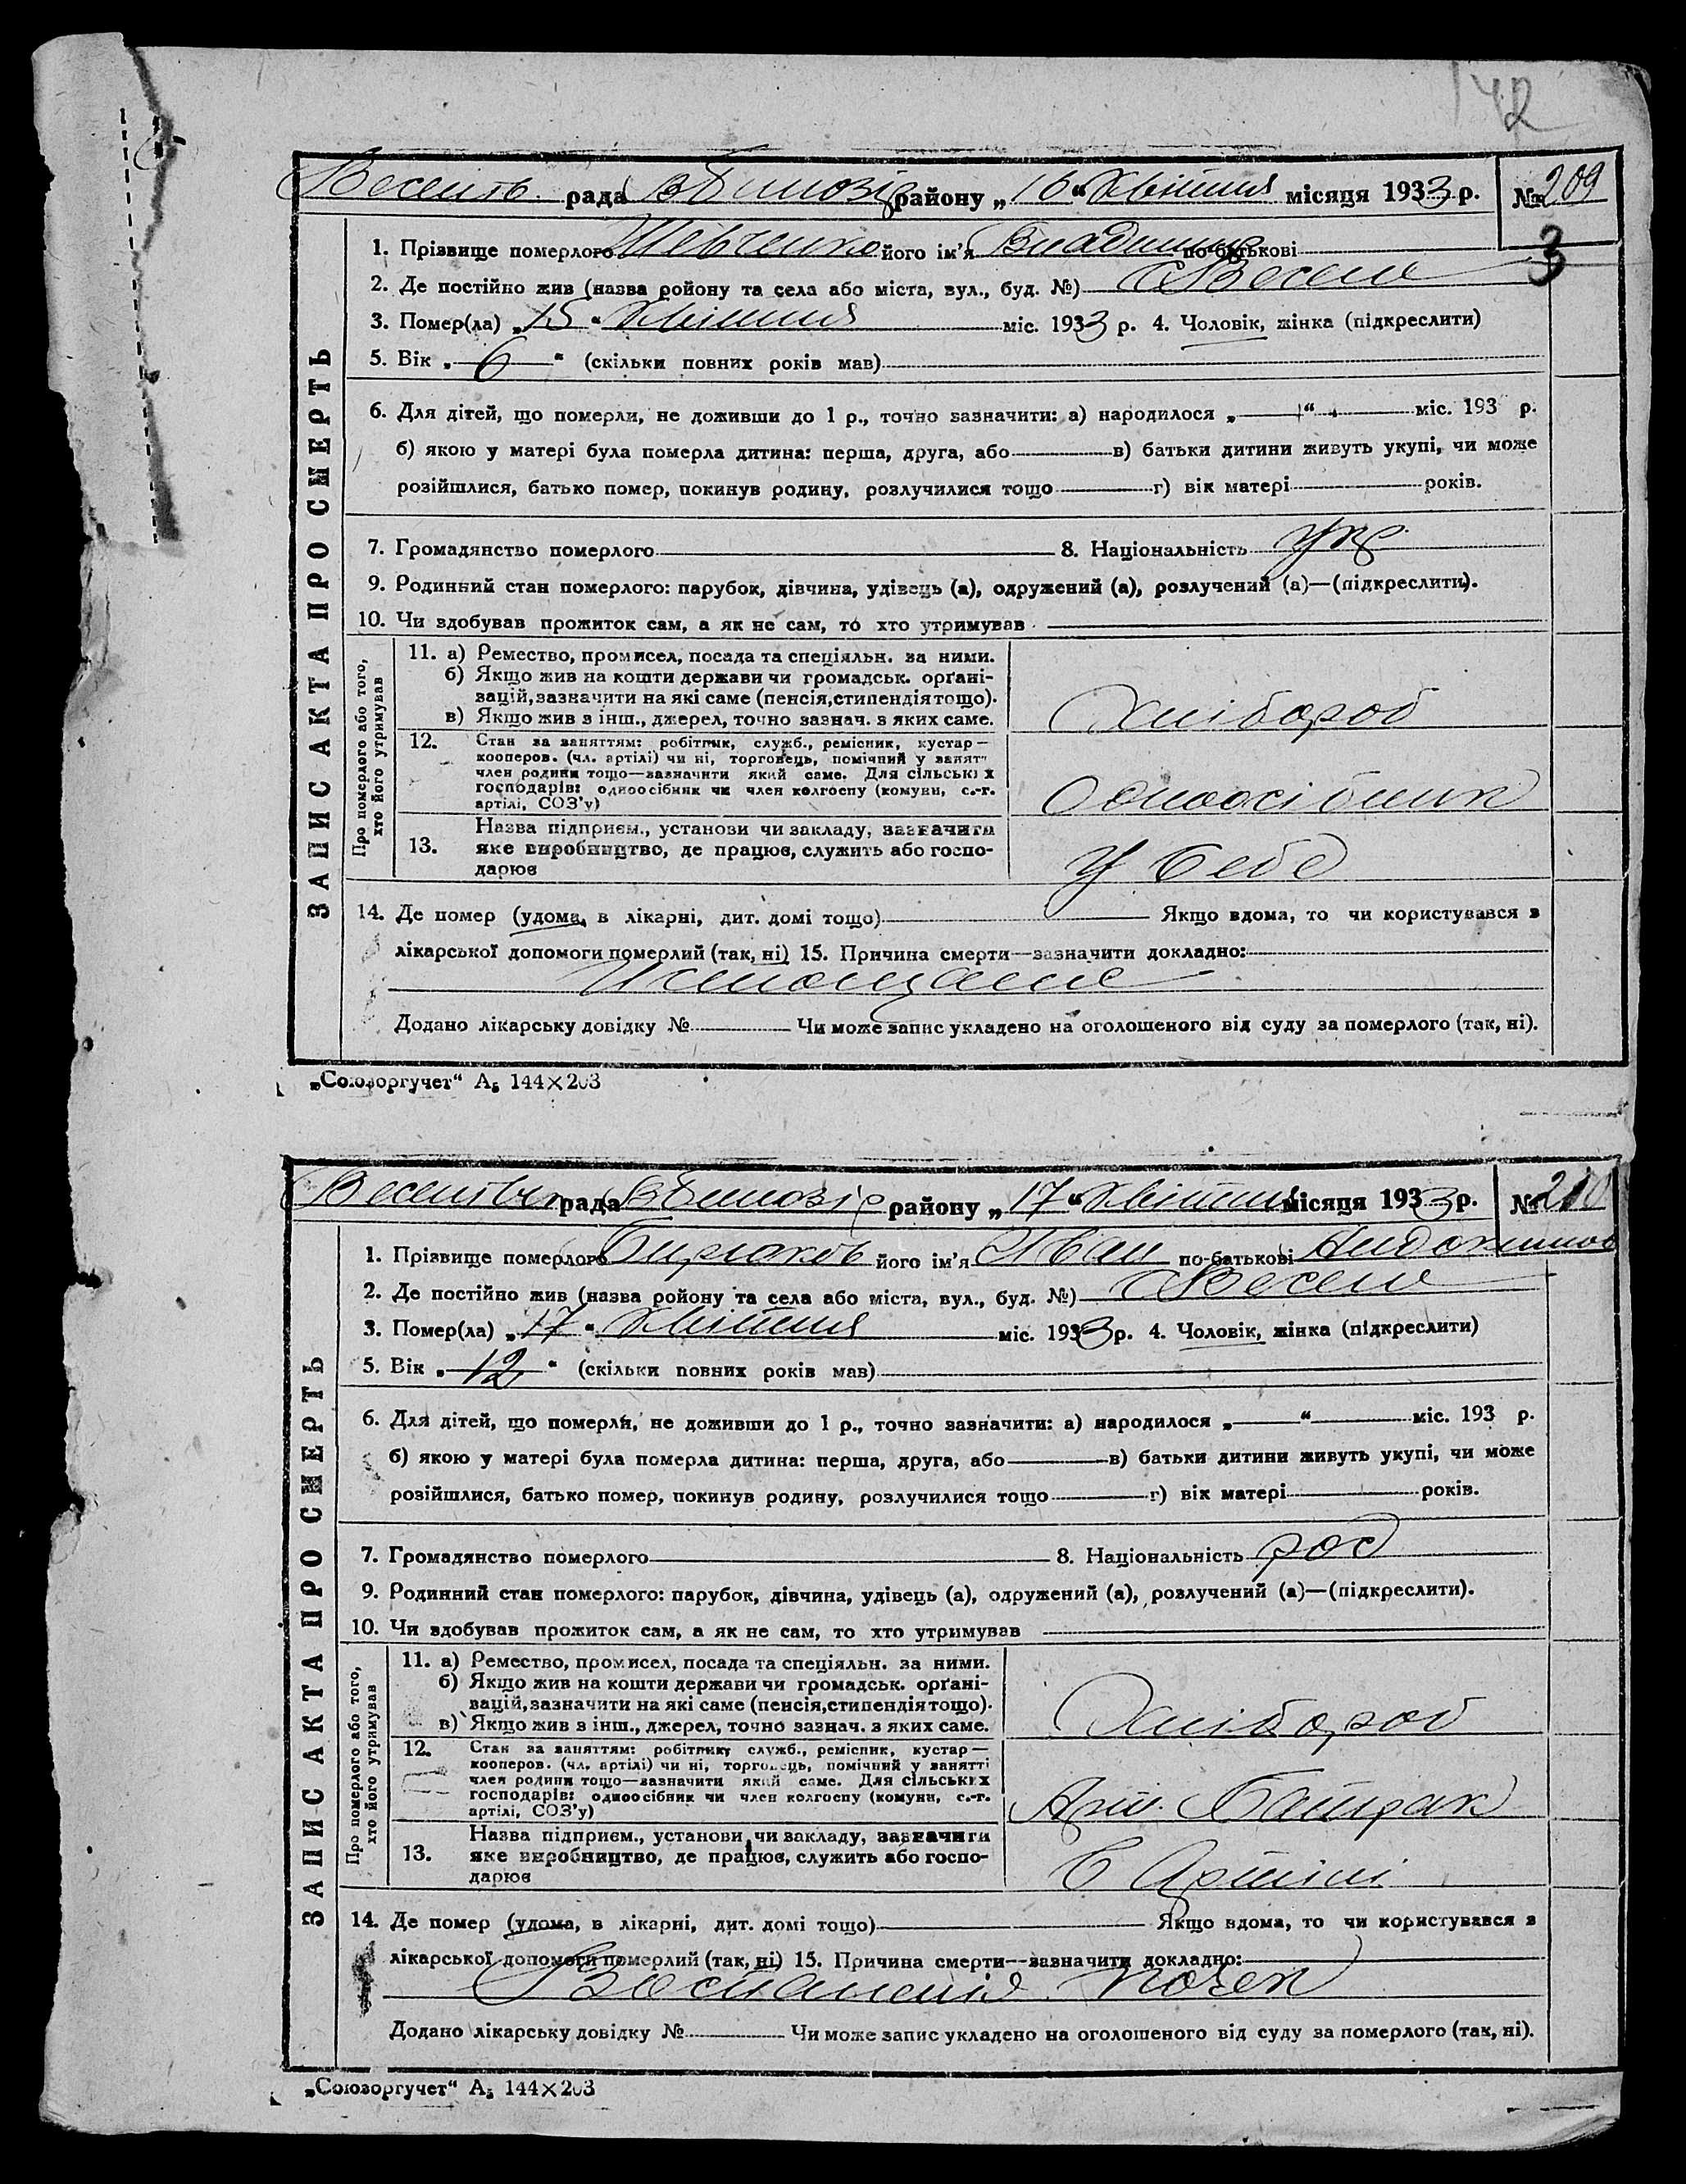 142
Веселів. рада В Білозір району „16“ Квітня місяця 1933 р. № 209
3
1. Прізвище померлого Шевченко його ім'я по-батькові
2. Де постійно жив (назва ройону та села або міста, вул., буд. №) с Веселе
3. Помер(ла) „15“ Квітня міс. 1933 р. 4. Чоловік, жінка (підкреслити)
5. Вік „6“ (скільки повних років мав)
6. Для дітей, що померли, не доживши до 1 р., точно зазначити: а) народилося „ “ міс. 193 р.
б) якою у матері була померла дитина: перша, друга, або в) батьки дитини живуть укупі, чи може
розійшлися, батько помер, покинув родину, розлучилися тощо г) вік матері років.
7. Громадянство померлого 8. Національність укр
9. Родинний стан померлого: парубок, дівчина, удівець (а), одружений (а), розлучений (а)—(підкреслити).
10. Чи здобував прожиток сам, а як не сам, то хто утримував
ЗАПИС АКТА ПРО СМЕРТЬ
Про померлого або того, хто його утримував
11. а) Ремество, промисел, посада та спеціяльн. за ними.
б) Якщо жив на кошти держави чи громадськ. орґані-
зацій, зазначити на які саме (пенсія, стипендія тощо).
в) Якщо жив з інш., джерел, точно зазнач. з яких саме.
Хлібороб
12. Стан за заняттям: робітник, служб., ремісник, кустар—
кооперов. (чл. артілі) чи ні, торговець, помічний у занят
член родини тощо—зазначити який саме. Для сільських
господарів: одноосібник чи член колгоспу (комуни, с.-г.
артілі, СОЗ'у)
Одноосібник
13. Назва підприєм., установи чи закладу, зазначити
яке виробництво, де працює, служить або госпо-
дарює
У себе
14. Де помер (удома, в лікарні, дит. домі тощо) Якщо вдома, то чи користувався з
лікарської допомоги померлий (так, ні) 15. Причина смерти—зазначити докладно:
Истощение
Додано лікарську довідку № Чи може запис укладено на оголошеного від суду за померлого (так, ні).
„Союзоргучет“ А5 144×203
рада В Білозір району „17“ Квітня місяця 1933 р. № 210
1. Прізвище померлого Бирюков його ім'я Иван по-батькові
2. Де постійно жив (назва ройону та села або міста, вул., буд. №) с Веселе
3. Помер(ла) „17“ Квітня міс. 1933 р. 4. Чоловік, жінка (підкреслити)
5. Вік „12“ (скільки повних років мав)
6. Для дітей, що померли, не доживши до 1 р., точно зазначити: а) народилося „ “ міс. 193 р.
б) якою у матері була померла дитина: перша, друга, або в) батьки дитини живуть укупі, чи може
розійшлися, батько помер, покинув родину, розлучилися тощо г) вік матері років.
7. Громадянство померлого 8. Національність рос
9. Родинний стан померлого: парубок, дівчина, удівець (а), одружений (а), розлучений (а)—(підкреслити).
10. Чи здобував прожиток сам, а як не сам, то хто утримував
ЗАПИС АКТА ПРО СМЕРТЬ
Про померлого або того, хто його утримував
11. а) Ремество, промисел, посада та спеціяльн. за ними.
б) Якщо жив на кошти держави чи громадськ. орґані-
зацій, зазначити на які саме (пенсія, стипендія тощо).
в) Якщо жив з інш., джерел, точно зазнач. з яких саме.
Хлібороб
12. Стан за заняттям: робітник, служб., ремісник, кустар—
кооперов. (чл. артілі) чи ні, торговець, помічний у занятті
член родини тощо—зазначити який саме. Для сільських
господарів: одноосібник чи член колгоспу (комуни, с.-г.
артілі, СОЗ'у)
Арт. Батрак
13. Назва підприєм., установи чи закладу, зазначити
яке виробництво, де працює, служить або госпо-
дарює
В Артілі
14. Де помер (удома, в лікарні, дит. домі тощо) Якщо вдома, то чи користувався з
лікарської допомоги померлий (так, ні) 15. Причина смерти—зазначити докладно:
Воспаления почек
Додано лікарську довідку № Чи може запис укладено на оголошеного від суду за померлого (так, ні).
„Союзоргучет“ А5 144×203